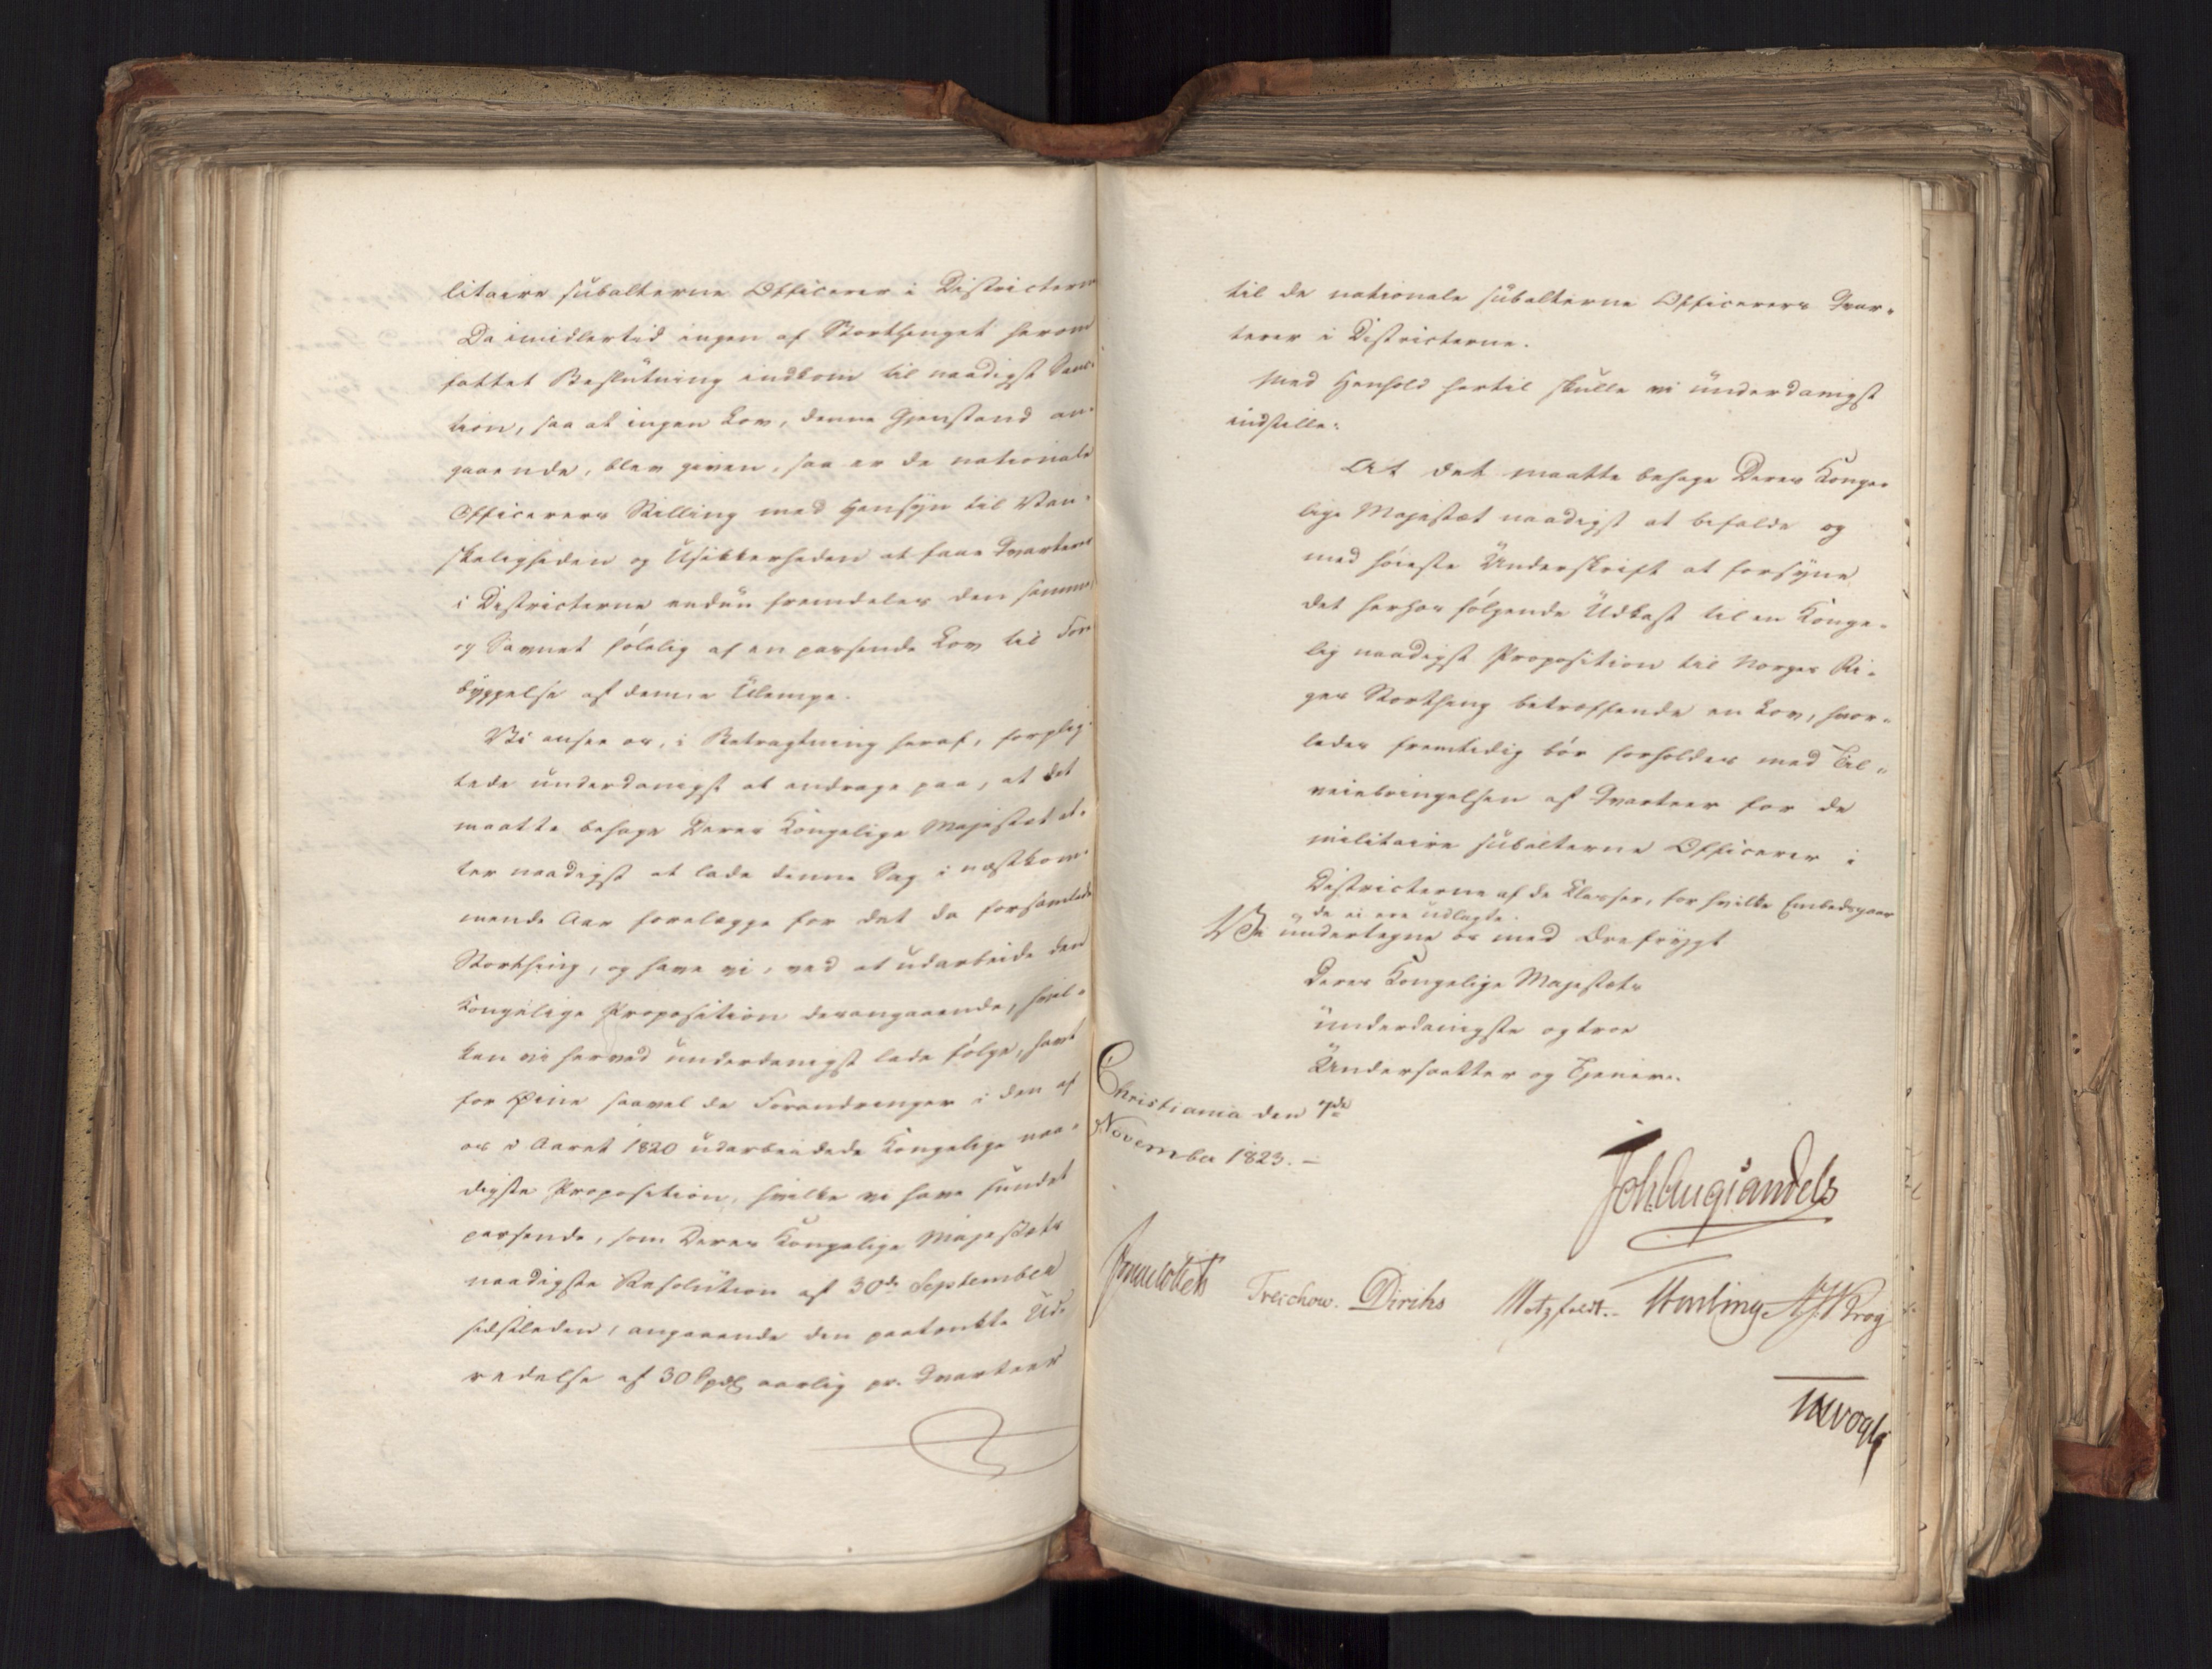 litaire subalterne Officerer i Districterne
Da imidlertid ingen af Storthinget herom
fattet Beslutning indkom til naadigst Sanc-
tion, saa at ingen Lov, denne Gjenstand an-
gaaende, blev given, saa er de nationale
Officerers Stilling med Hensyn til Van-
skeligheden og Usikkerheden at faae Qvarteer
i Districterne endnu fremdeles den samme
og Savnet følelig af en passende Lov til Fore
byggelse af denne Ulempe.
Vi ansee os, i Betragtning heraf, forplig-
tede underdanigst at andrage paa, at det
maatte behage Deres Kongelige Majestæt at-
ter naadigst at lade denne Sag i næstkom-
mende Aar forelægge for det da forsamlede
Storthing, og have vi, ved at udarbeide den
Kongelige Proposition derangaaende, hvil-
ken vi herved underdanigst lade følge, havt
for Øine saavel de Forandringer i den af
os i Aaret 1820 udarbeidede Kongelige naa-
digste Proposition, hvilke vi have fundet
passende, som Deres Kongelige Majestæts
naadigste Resolution af 30de September
sidstleden, angaaende den paatænkte Ud-
redelse af 30 Spdlr aarlig pr. Qvarteer
til de nationale subalterne Officerers Qvar-
terer i Districterne.
Med Henhold hertil skulle vi underdanigst
indstille:
At det maatte behage Deres Konge-
lige Majestæt naadigst at befale og
med høieste Underskrift at forsyne
det herhos følgende Udkast til en Konge-
lig naadigst Proposition til Norges Ri-
ges Storthing betræffende en Lov, hvor-
ledes fremtidig bør forholdes med Til-
veiebringelsen af Qvarteer for de
militaire subalterne Officerer i
Districterne af de Classer, for hvilke Embedsgaar
de ei ere udlagte.
Vi undertegne os med Ærefrygt
Deres Kongelige Majestæts
underdanigste og troe
Undersaatter og Tjenere.
Christiania den 7de
November 1823. –
Joh Aug Sandels
Treschow. Diriks Motzfeldt. Krog
Vogt